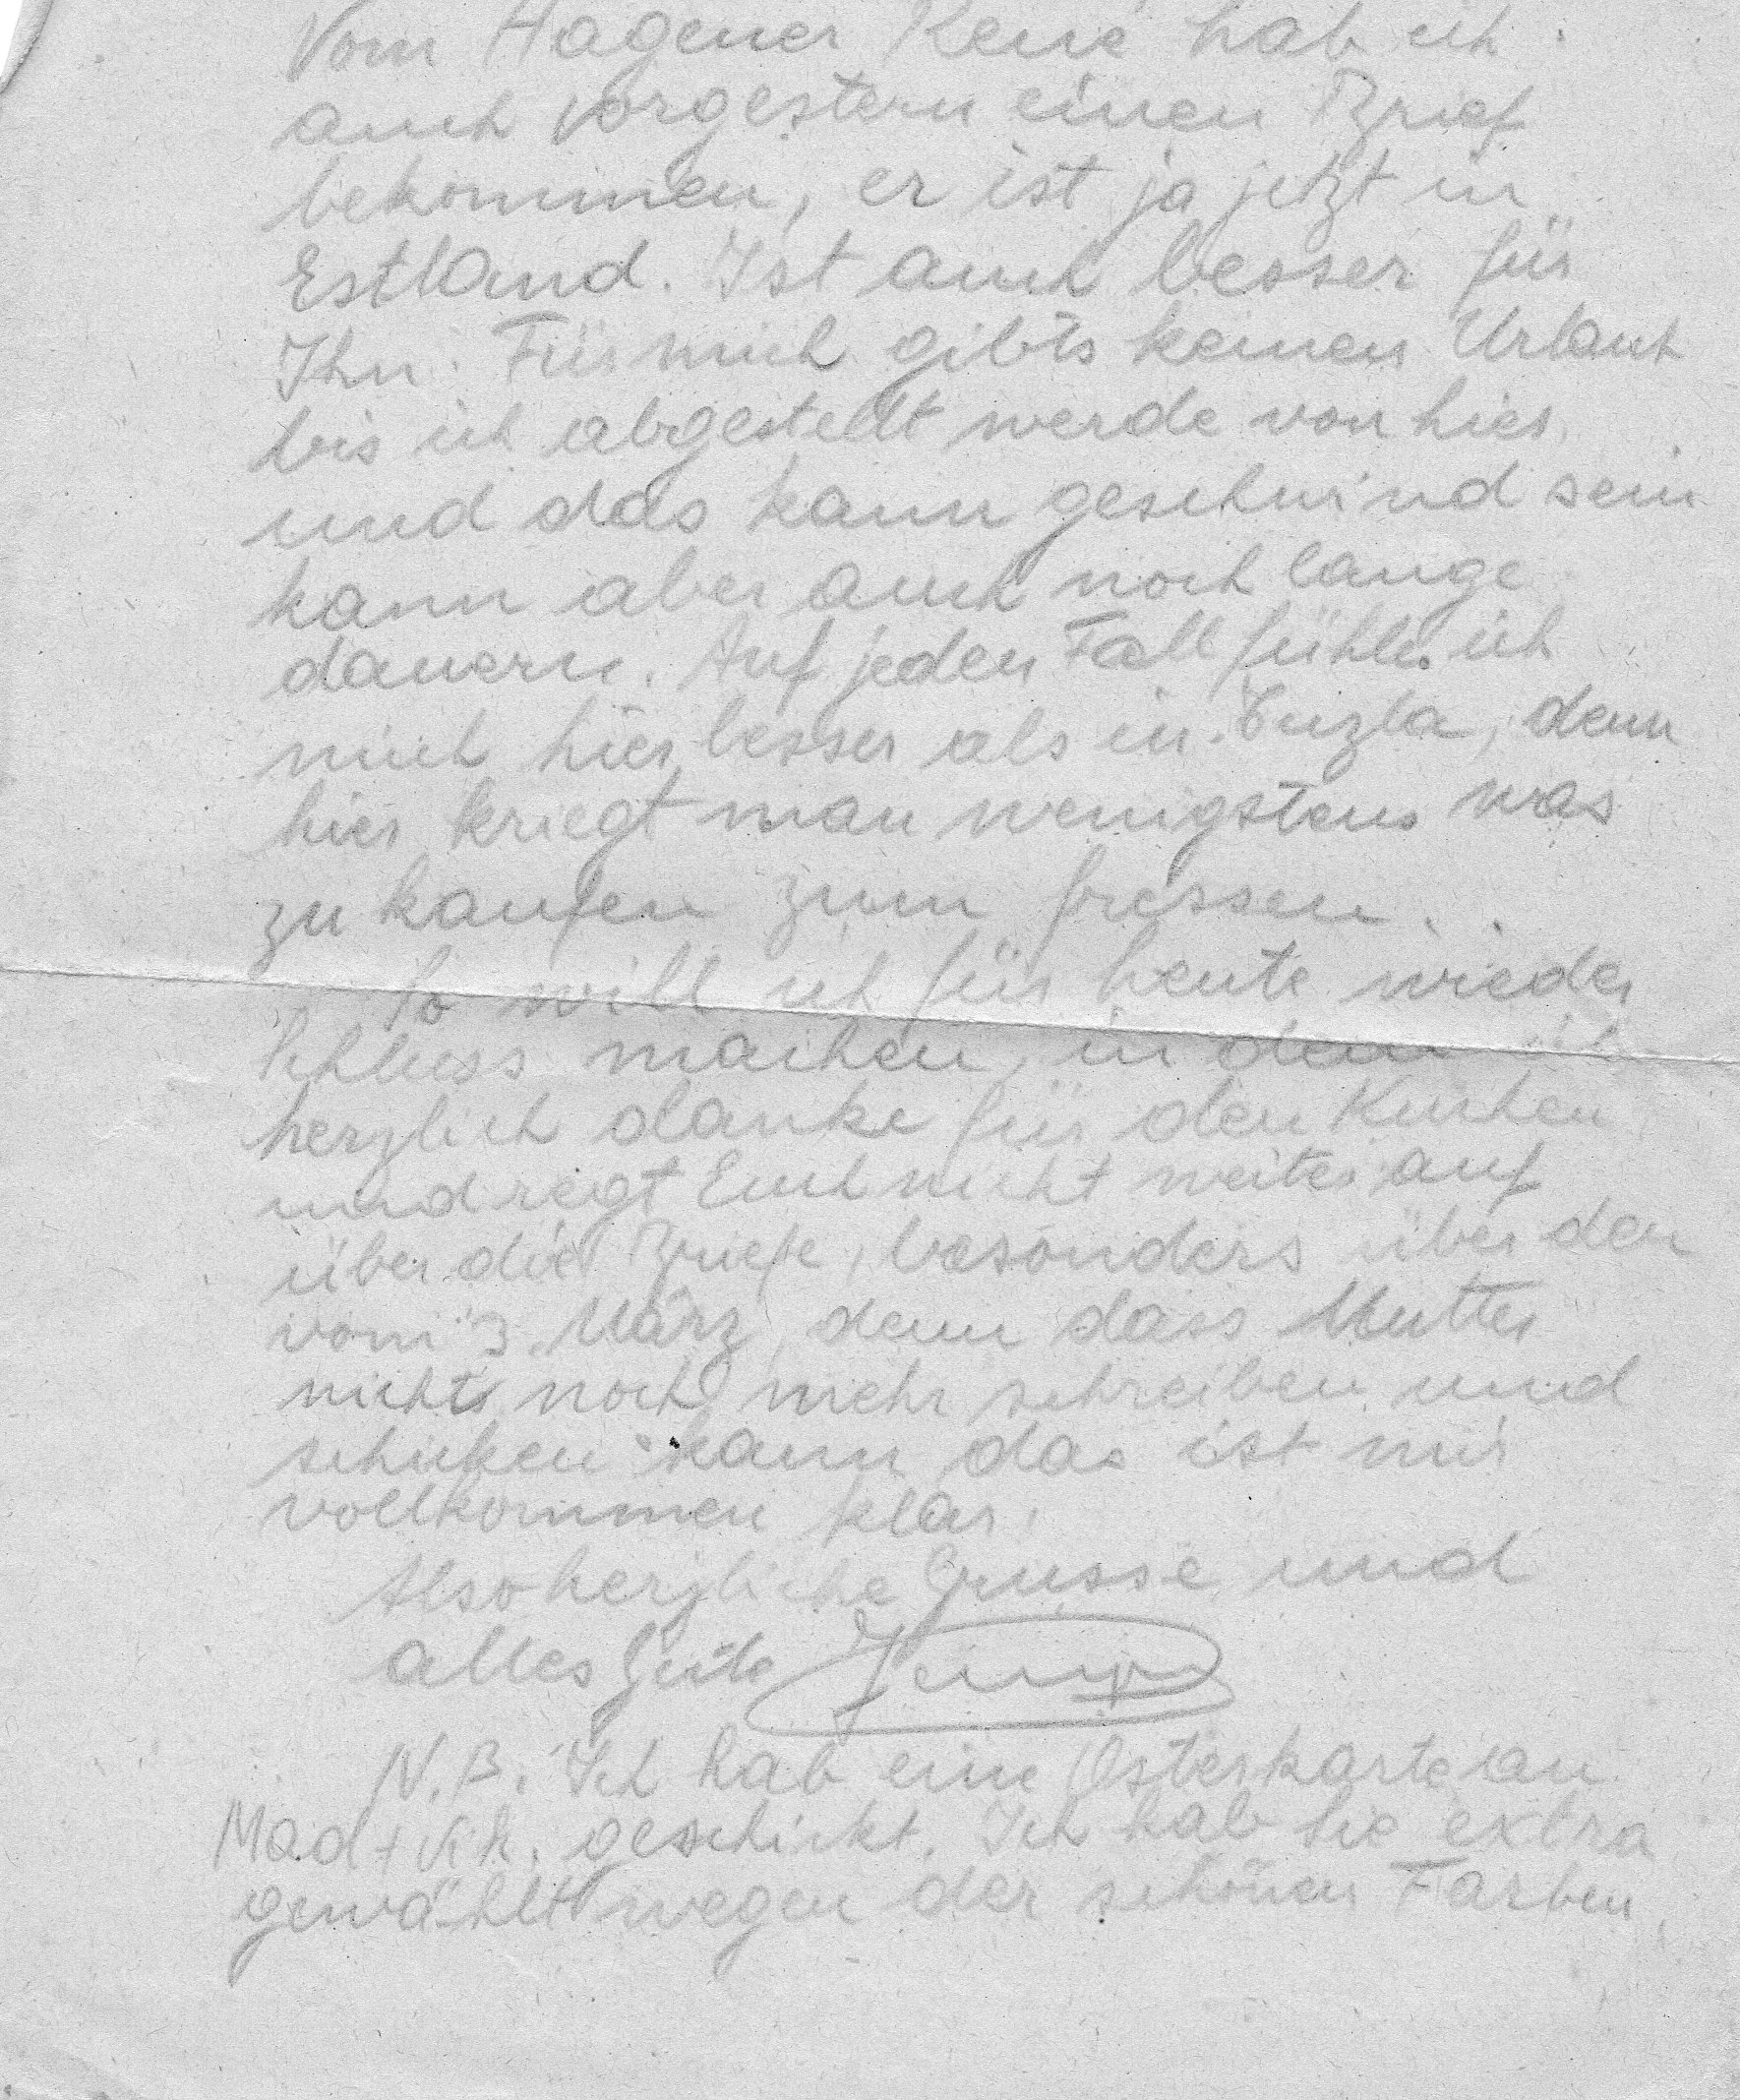 Vom Hagener René hab ich
auch vorgestern einen Brief
bekommen, er ist ja jetzt in
Estland. Ist auch besser für
Ihn. Für mich gibts keinen Urlaub
bis ich abgestellt werde von hier
und das kann geschwind sein
kann aber auch noch lange
dauern. Auf jeden Fall fühle ich
mich hier besser als in Tuzla, denn
hier kriegt man wenigstens was
zu kaufen zum fressen.
So will ich für heute wieder
Schluss machen, in dem ich
herzlich danke für den Kuchen
und regt Euch nicht weiter auf
über die Briefe, besonders über den
vom 3. März, denn dass Mutter
nicht noch mehr schreiben und
schicken kann, das ist mir
vollkommen klar.
Also herzliche Grüsse und
alles Gute
N.B. Ich hab eine Osterkarte an
Mad + geschickt. Ich hab sie extra
gewählt wegen der schönen Farben.